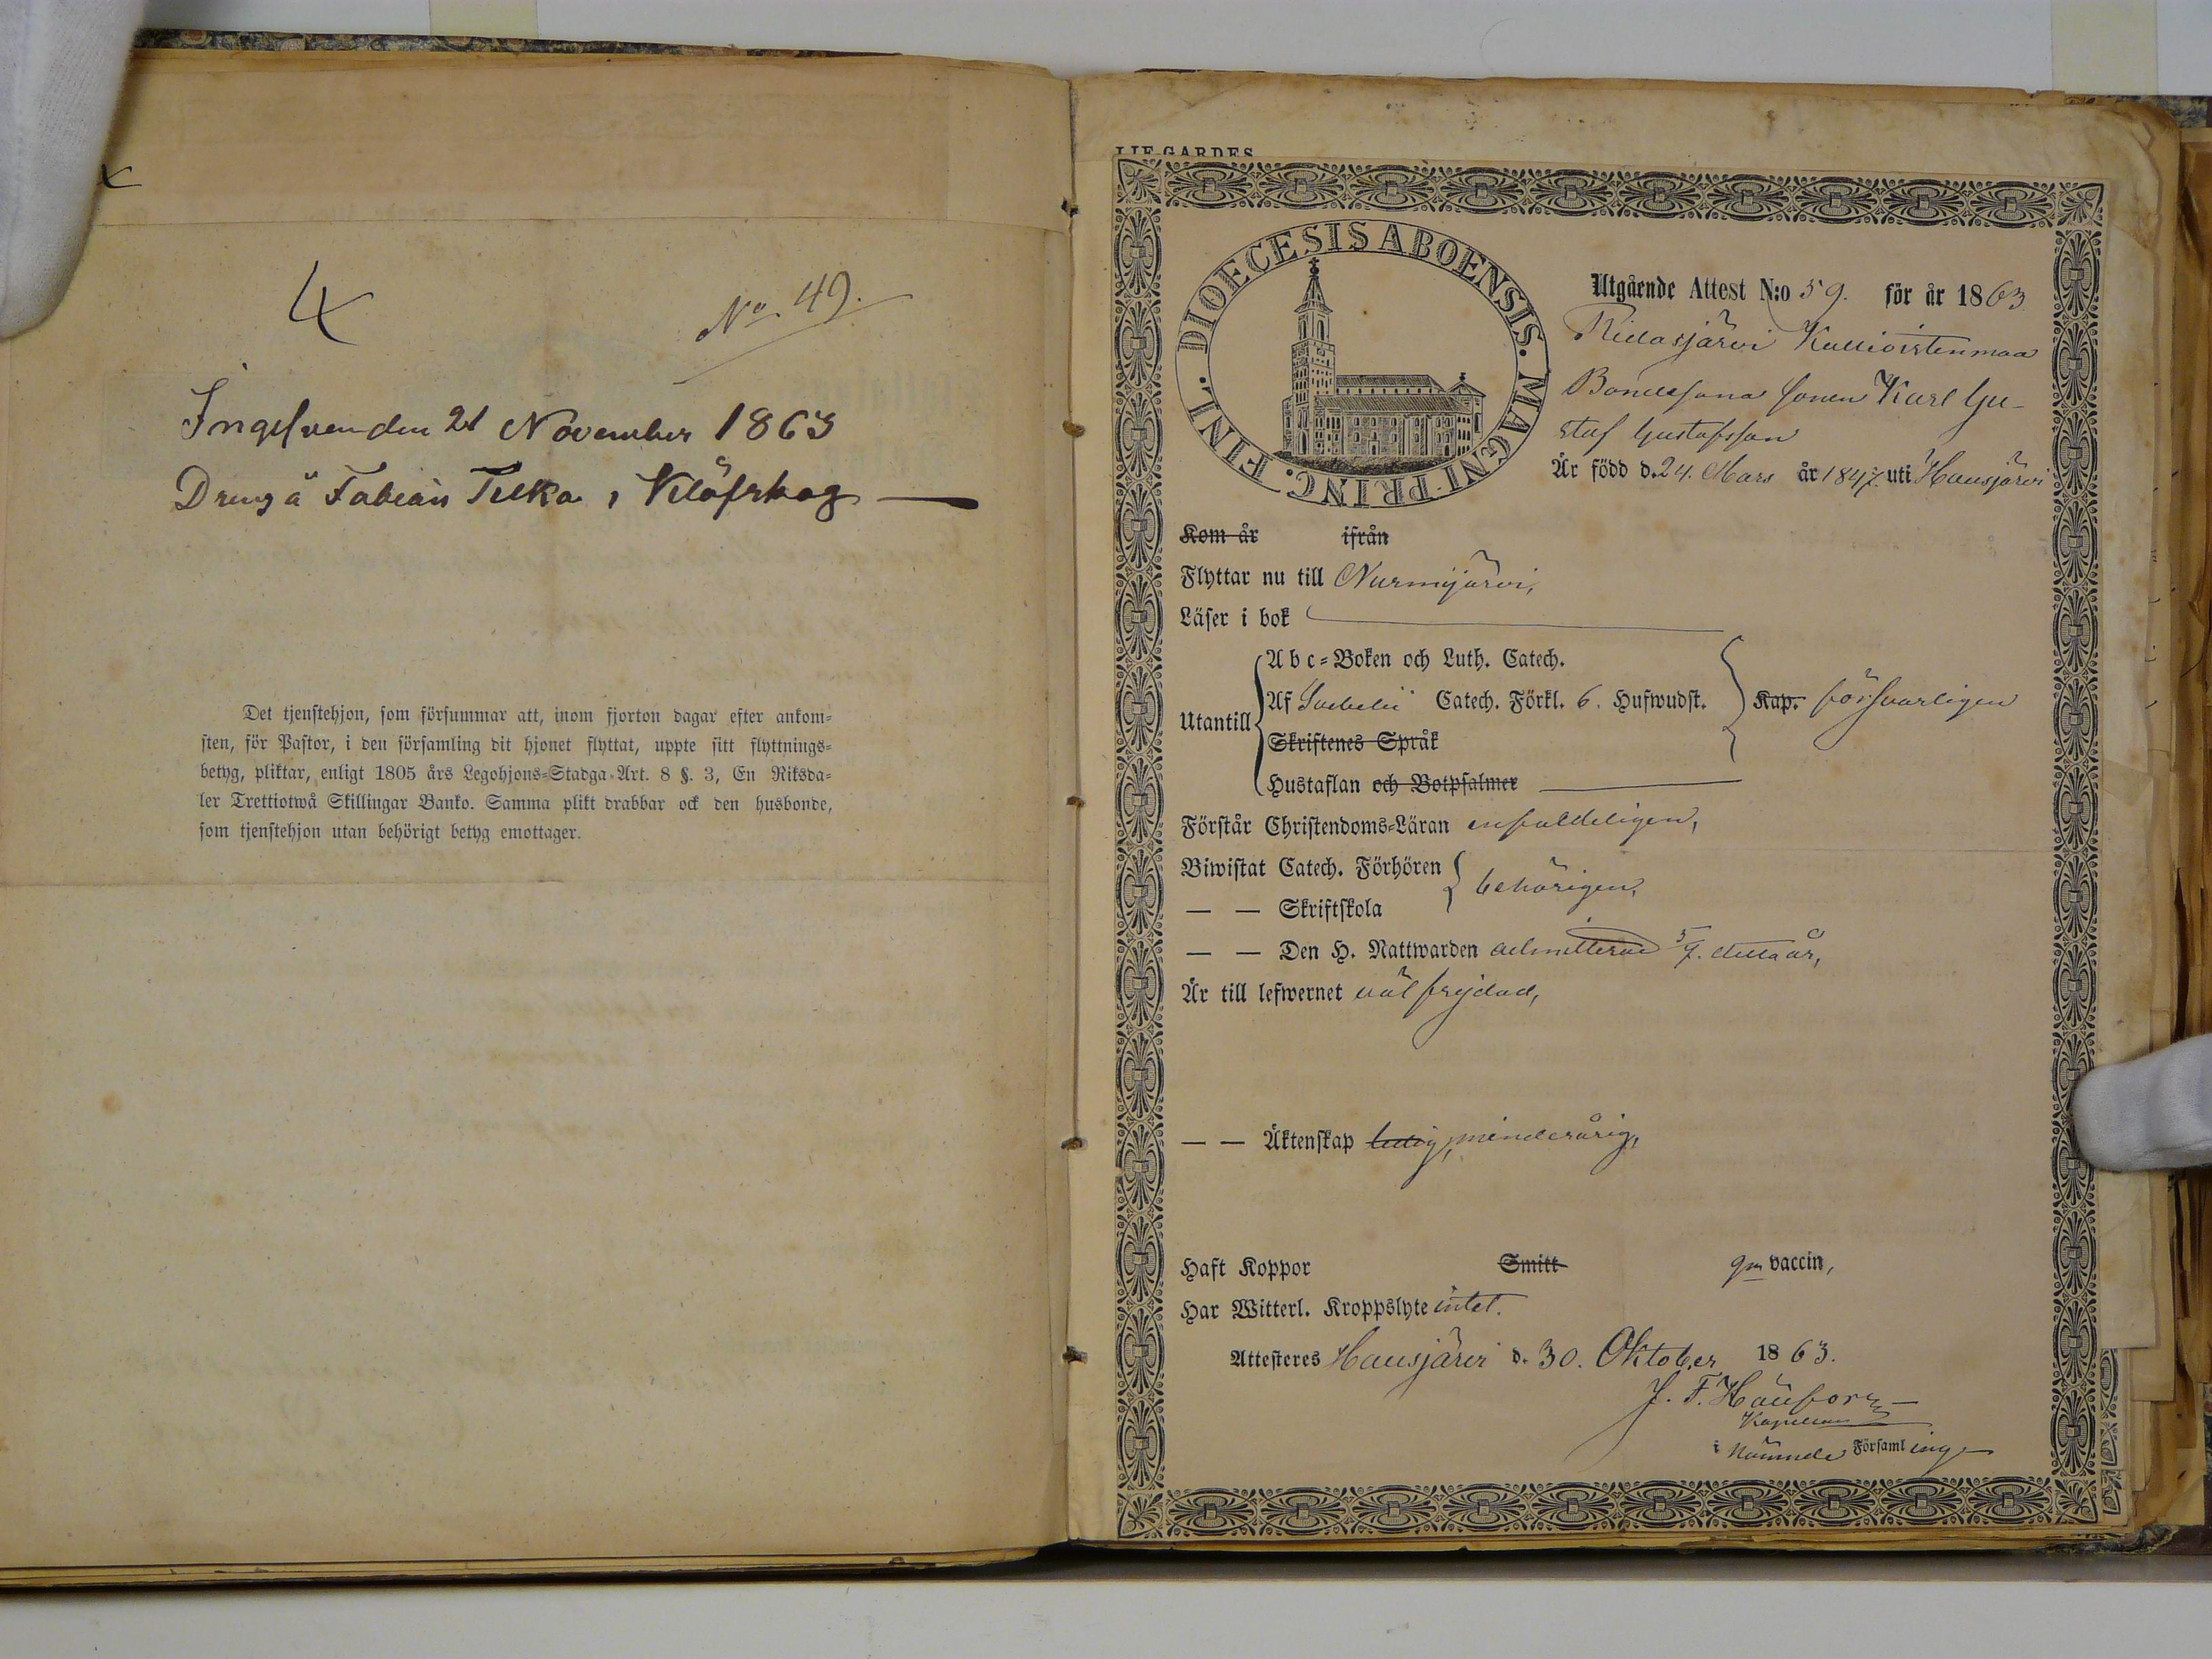 4
No. 49.
Ingifven den 21 November 1863
Dreng å Fabians Tilka, Klöfskog
Det tjenstehjon, som försummar att, inom fjorton dagar efter ankom-
sten, för Pastor, i den församling dit hjonet flyttat, uppte sitt flyttnings-
betyg, pliktar, enligt 1805 års Legohjons-Stadga Art. 8 §. 3, En Riksda-
ler Trettiotwå Skillingar Banko. Samma plikt drabbar ock den husbonde,
som tjenstehjon utan behörigt betyg emottager.
LIF-GARDES
DIOECESIS ABOENSIS. MAGNI PRINC. FINL.
Utgående Attest N:o 59. för år 1863
Ridasjärvi
Bondesona sonen Karl Gu-
staf Gustafsson
Är född d. 24. Mars år 1847. uti Hausjärvi
Kom år ifrån
Flyttar nu till Nurmijärvi,
Läser i bok
Utantill
Abc-Boken och Luth. Catech.
Af Svebelii Catech. Förkl. 6. Hufwudst.
Kap. försvarligen
Skriftenes Språk
Hustaflan och Botpsalmer
Förstår Christendoms-Läran enfaldeligen,
Biwistat Catech. Förhören
behörigen,
— — Skriftskola
— — Den H. Nattwarden admitterad 5/7. detta år,
Är till lefwernet väl frejdad,
— — Äktenskap ledig, minderårig,
Haft Koppor Smitt gm vaccin,
Har Witterl. Kroppslyte intet.
Attesteres Hausjärvi d. 30. Oktober 1863.
J. F.
Kapellan
i nämnde Församling